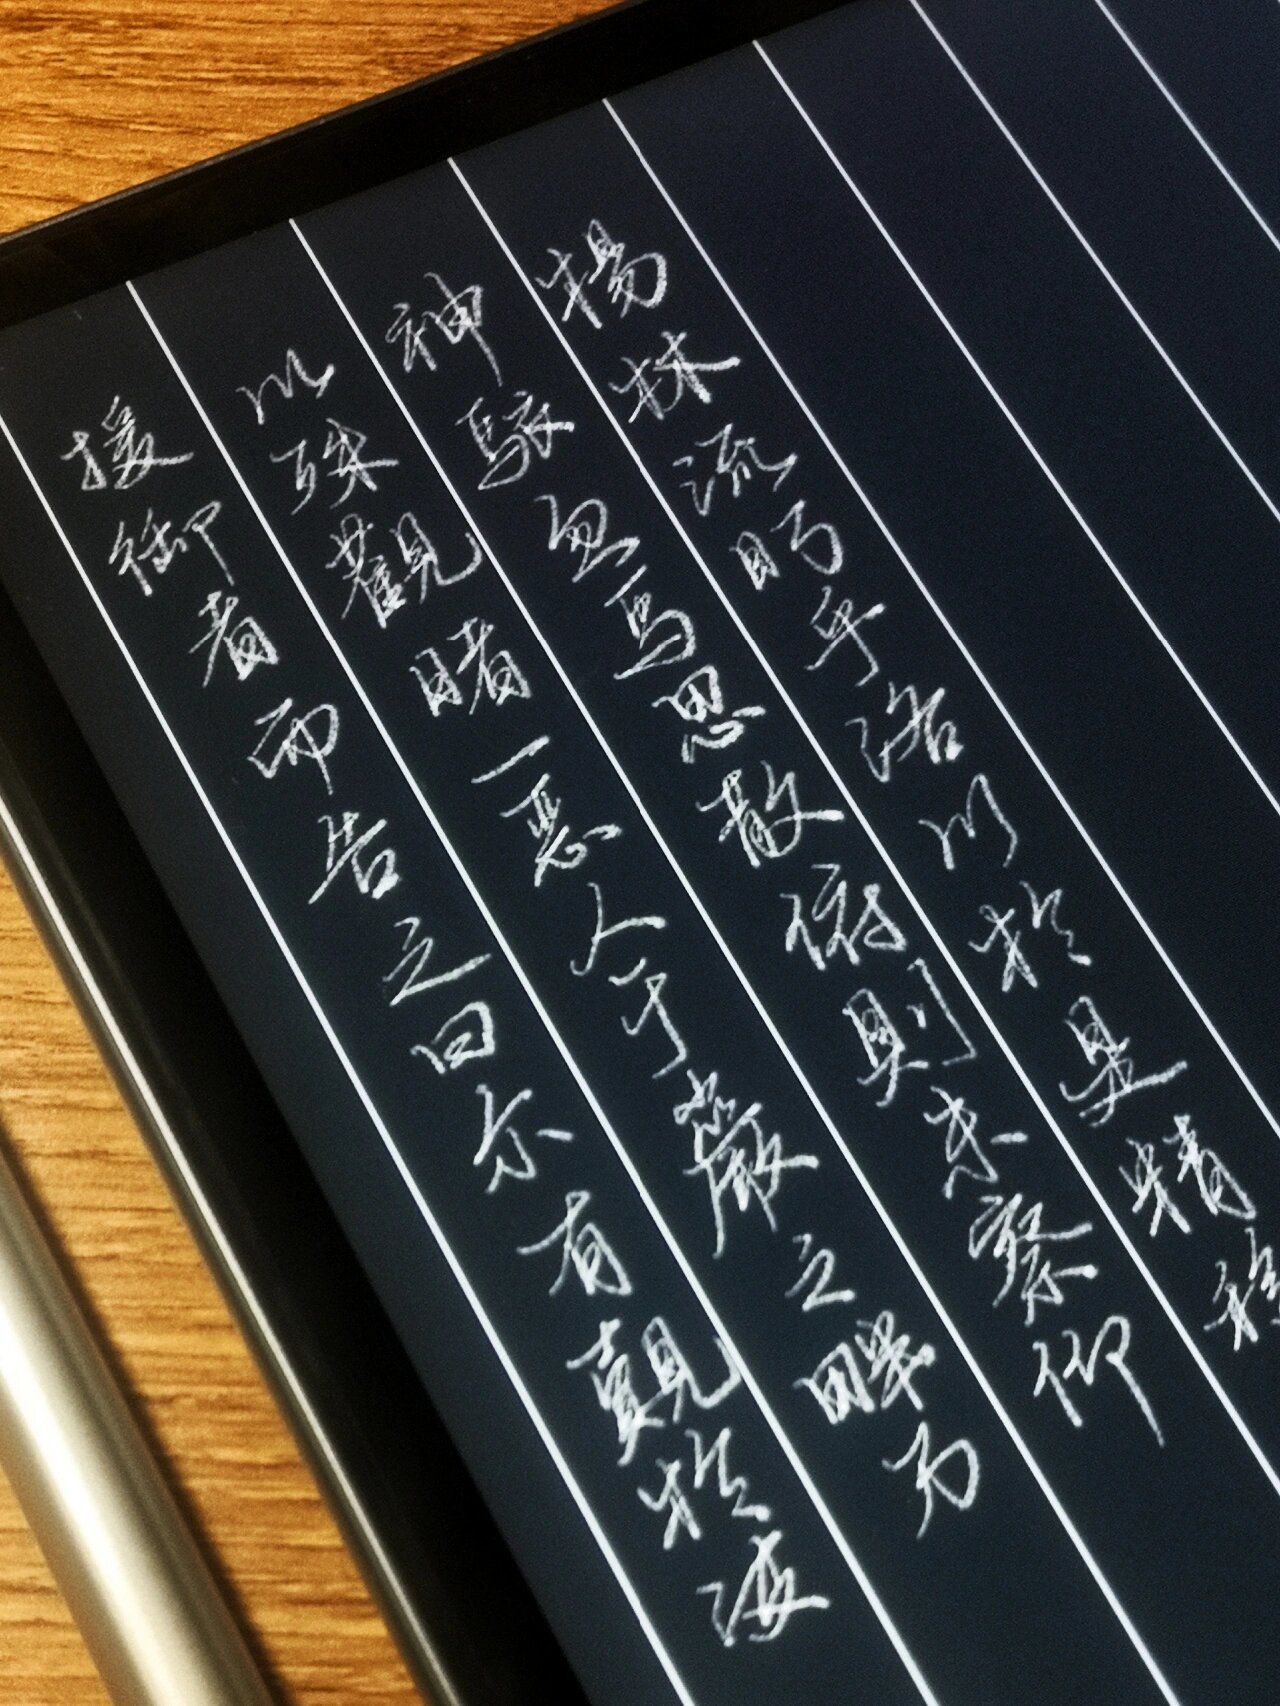 楊林流眄乎洛川於是精移
神駭忽焉思散俯則未察仰
以殊觀睹一麗人于巖之畔乃
援御者而告之曰尔有覿於彼